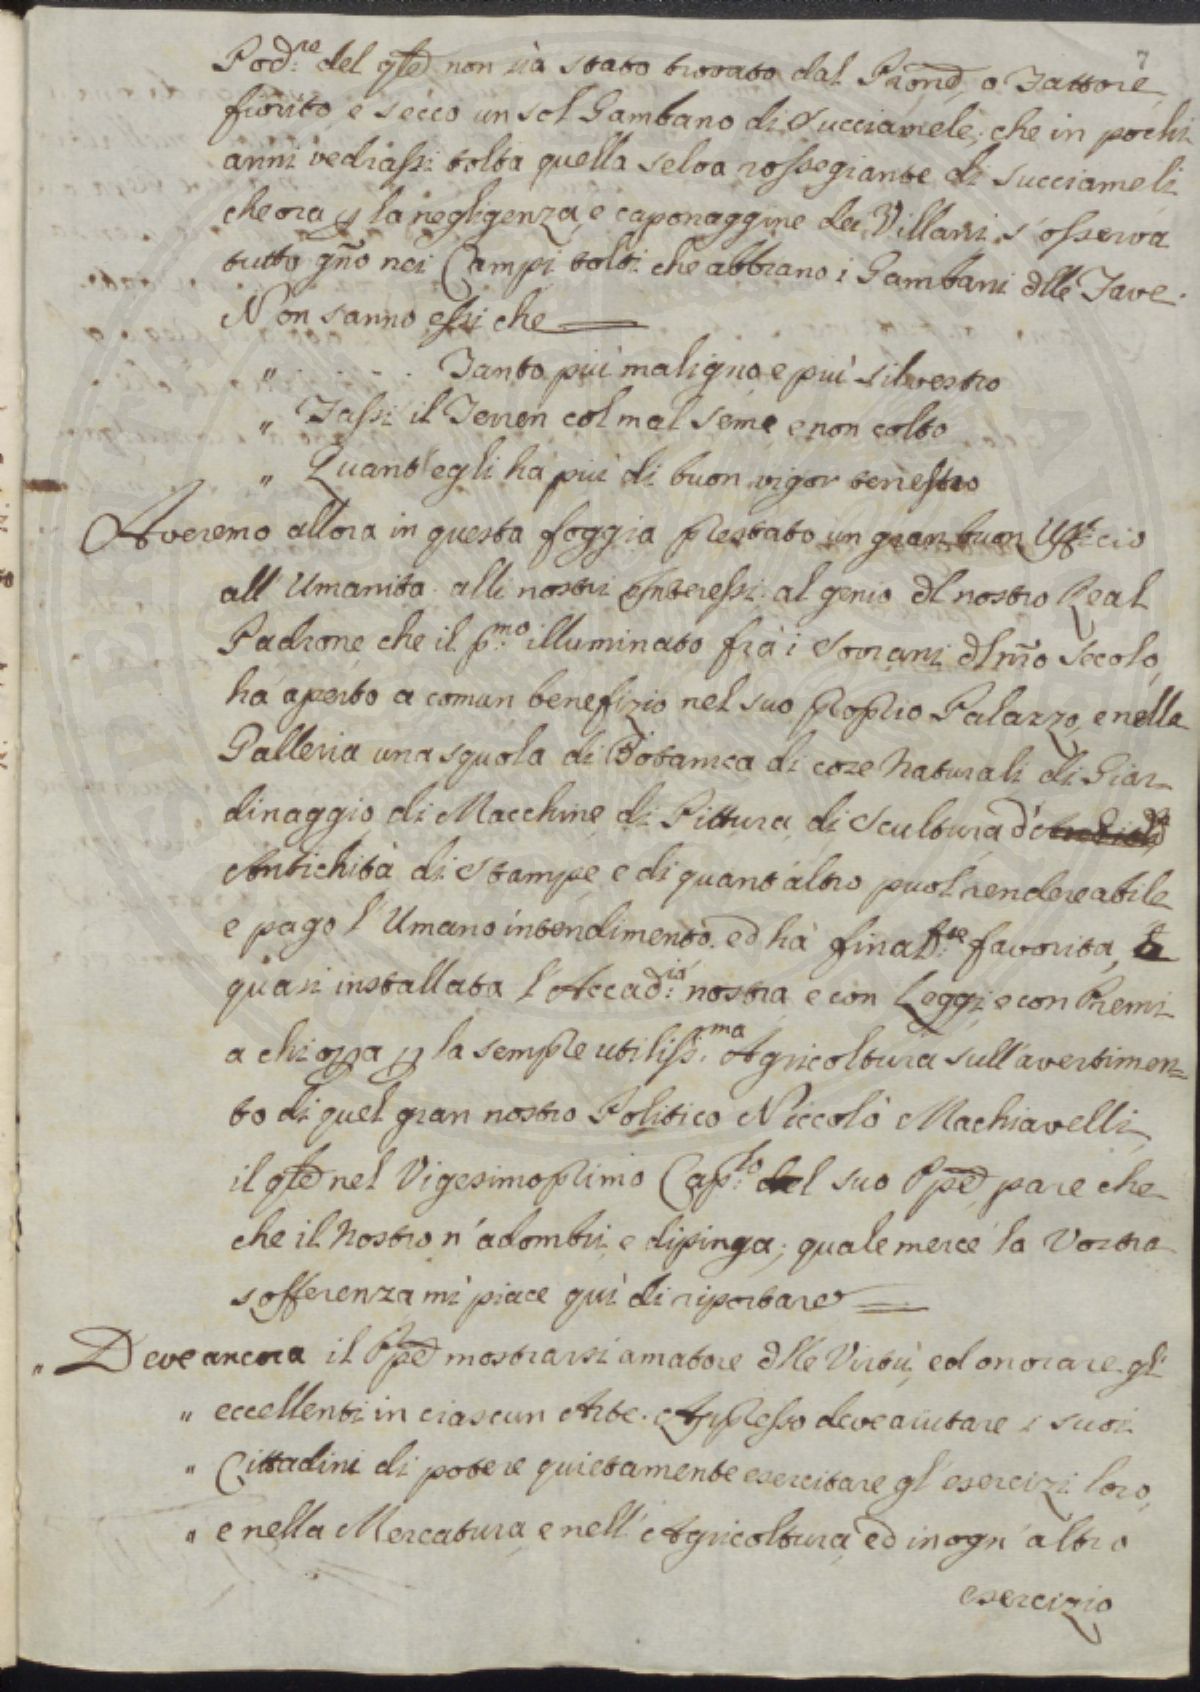 7
Pod:re del qle non sia stato trovato dal Prone, o Fattore,
fiorito, e secco un sol Gambano di Succiamele; che in pochi
anni vedrassi tolta quella selva rossegiante di succiameli
che ora p la negligenza, e caponaggine dei Villani s'osserva
tutto gño nei Campi tolti che abbiano i Gambani dlle Fave.
Non sanno essi che
" . . . . . Tanto più maligno, e più silvestro
" Fassi il Terren col mal seme, e non colto
" Quant'egli hà più di buon vigor terrestro
Averemo allora in questa foggia prestato un gran buon Uffizio
all'Umanità. alli nostri Interessi. al genio dl nostro Real
Padrone, che il p:mo illuminato frà i Sovrani dl nro Secolo,
ha aperto a comun benefizio nel suo proprio Palazzo, e nella
Galleria una squola di Botanica di cose Naturali, di Giar-
dinaggio di Macchine, di Pittura, di Scultura d'
Antichità di Stampe, e di quant'altro puol rendere abile
e pago l'Umano intendimento. ed hà final:te favorita, e
quasi installata l'Accad:ia nostra, e con Leggi, e con Premi
a chi opra p la sempre utiliss:ma Agricoltura sull'avertimen=
to di quel gran nostro Politico Niccolò Machiavelli,
il qle nel Vigesimoprimo Cap:lo del suo Ppe pare che
che il Nostro n'adombri, e dipinga; quale mercè la Vostra
sofferenza mi piace quì di riportare
" Deve ancora il Ppe mostrarsi amatore dlle Virtù, ed onorare gl'
" eccellenti in ciascun Arte. Appresso deve aiutare i suoi
" Cittadini di potere quietamente esercitare gl'esercizi loro,
" e nella Mercatura, e nell'Agricoltura, ed in ogn'altro
esercizio